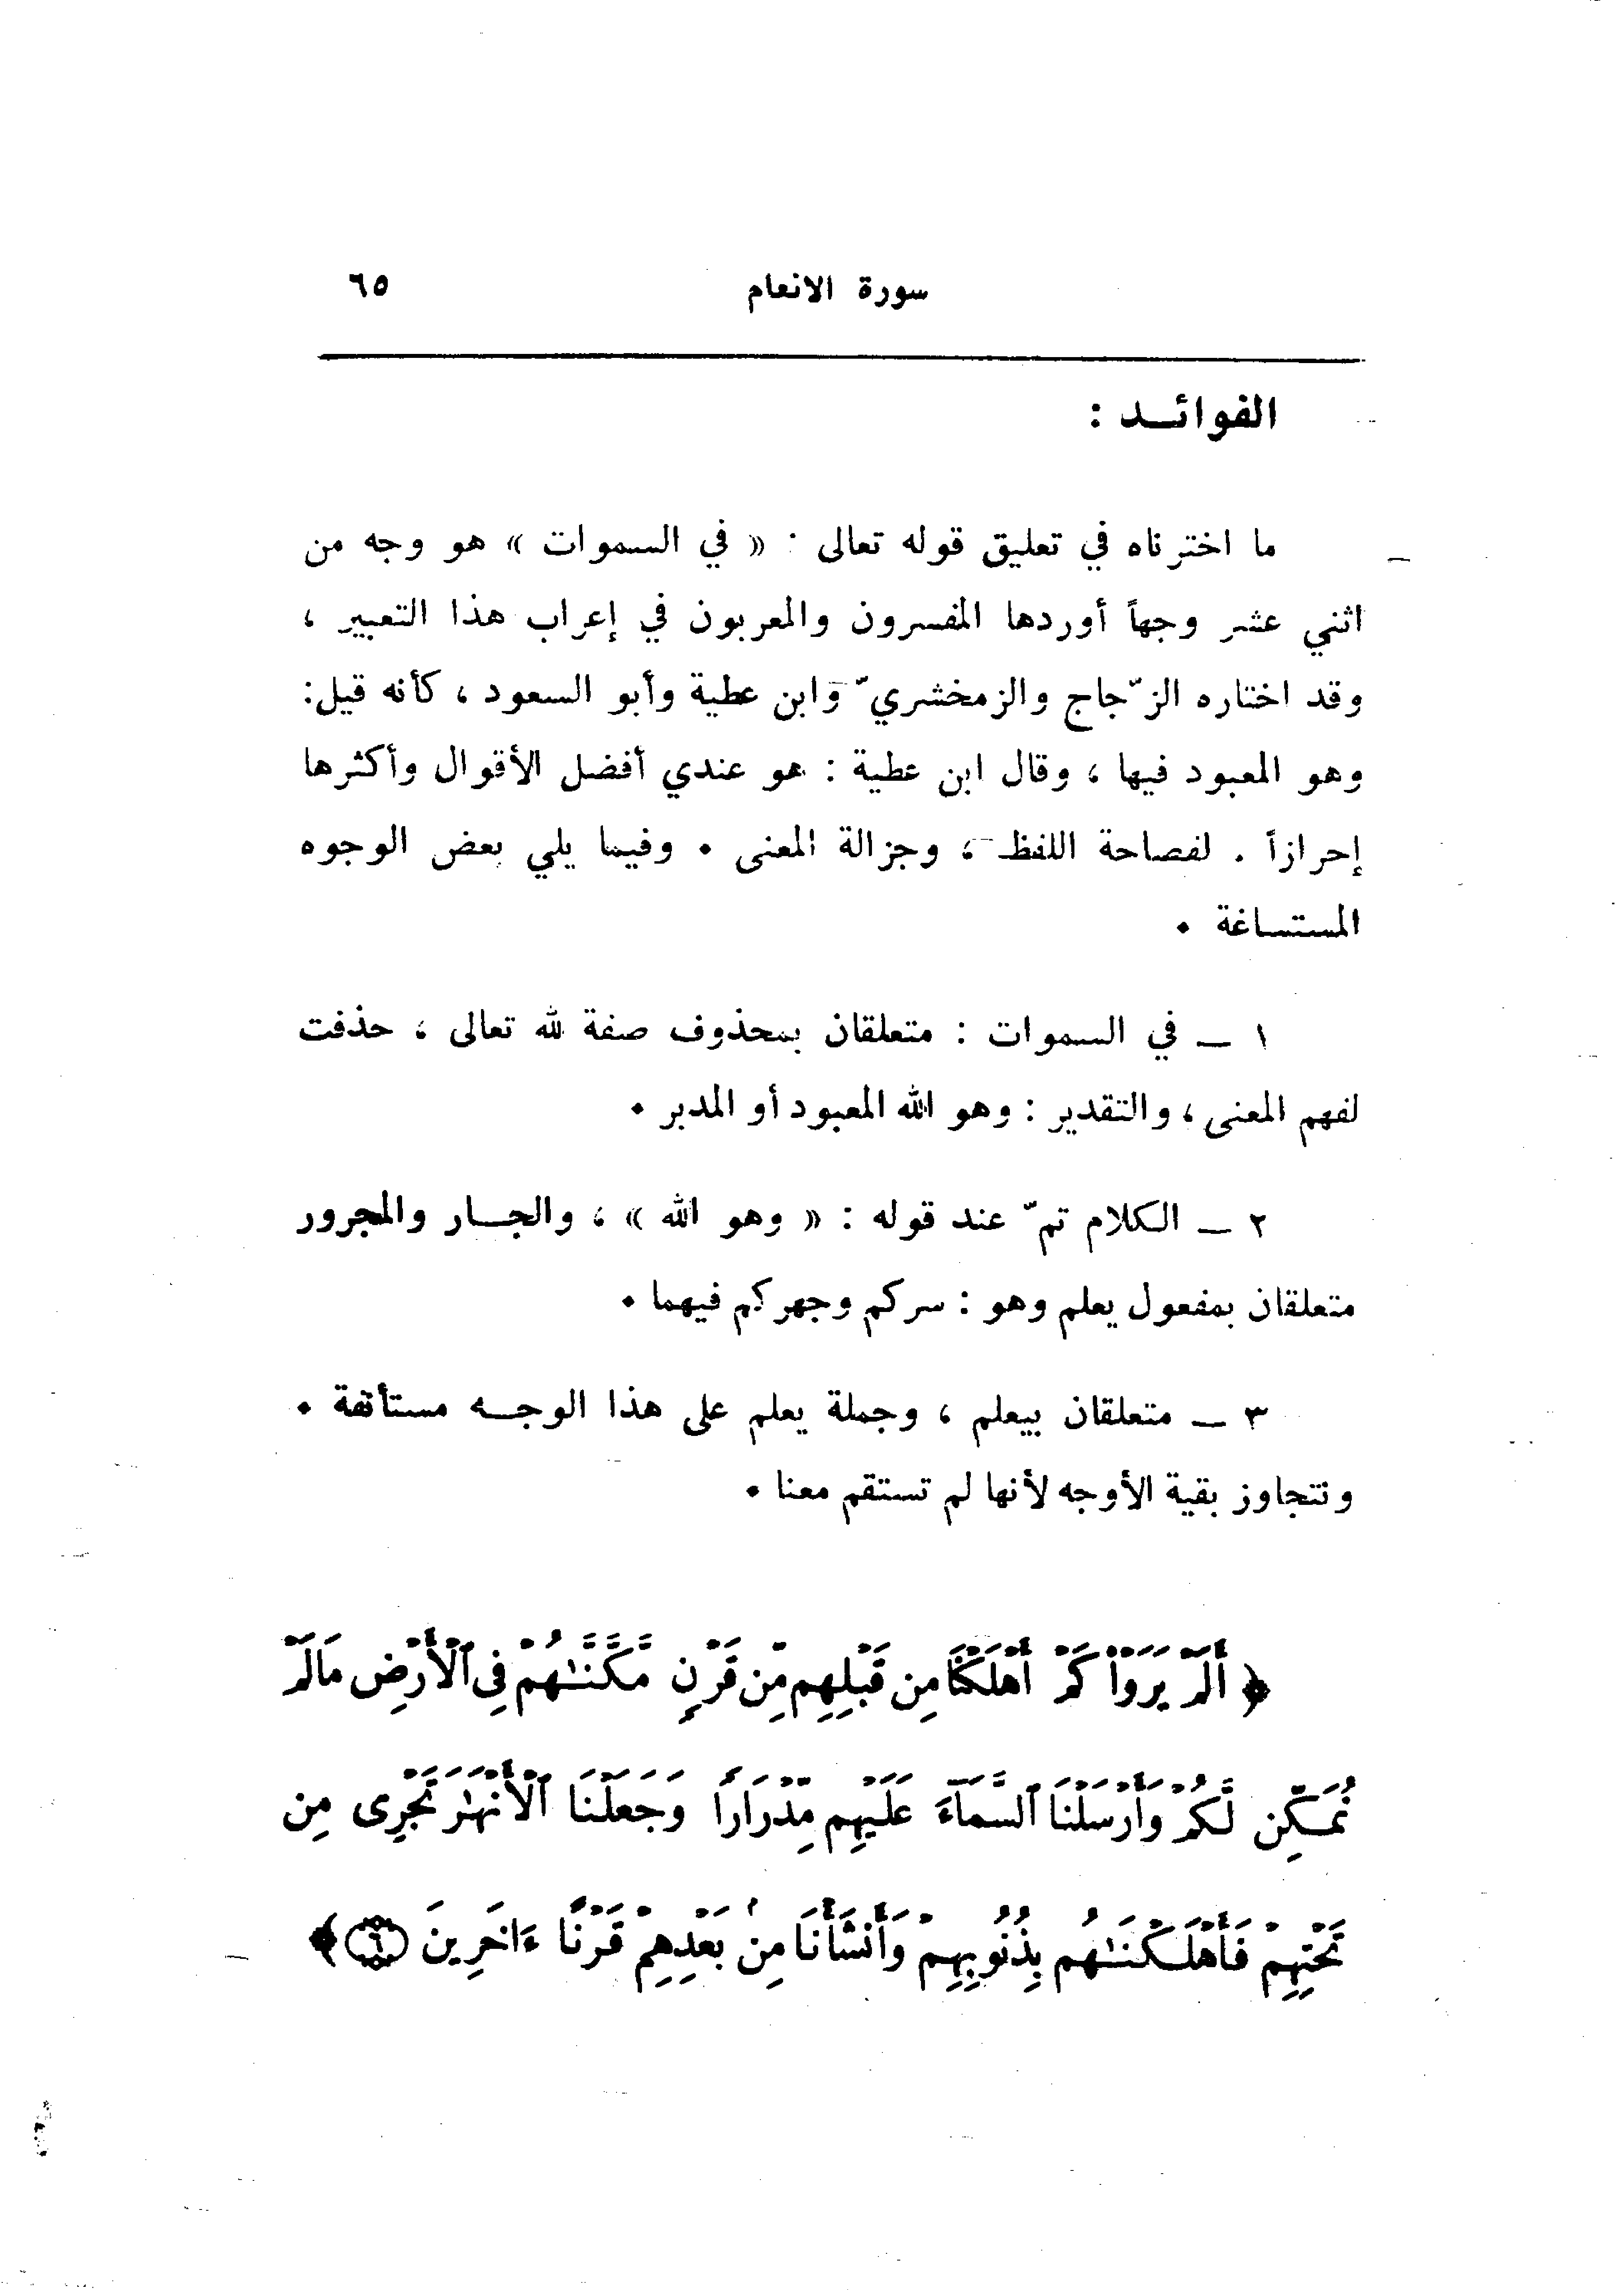 سورة الانعام ٦٥
الفوائــد :
ما اخترناه في تعليق قوله تعالى : « في السموات » هو وجه من
اثني عشر وجهاً أوردها المفسرون والمعربون في إعراب هذا التعبير ،
وقد اختاره الزّجاج والزمخشريّ وابن عطية وأبو السعود ، كأنه قيل:
وهو المعبود فيها ، وقال ابن عطية : هو عندي أفضل الأقوال وأكثرها
إحرازاً . لفصاحة اللفظ ، وجزالة المعنى . وفيما يلي بعض الوجوه
المستساغة .
١ ــ في السموات : متعلقان بمحذوف صفة لله تعالى ، حذفت
لفهم المعنى ، والتقدير : وهو الله المعبود أو المدبر .
٢ ــ الكلام تمّ عند قوله : « وهو الله » ، والجــار والمجرور
متعلقان بمفعول يعلم وهو : سركم وجهركم فيهما .
٣ ــ متعلقان بيعلم ، وجملة يعلم على هذا الوجــه مستأنفة .
ونتجاوز بقية الأوجه لأنها لم تستقم معنا .
﴿ أَلَمْ يَرَوْا۟ كَمْ أَهْلَكْنَا مِن قَبْلِهِم مِّن قَرْنٍ مَّكَّنَّـٰهُمْ فِى ٱلْأَرْضِ مَا لَمْ
نُمَكِّن لَّكُمْ وَأَرْسَلْنَا ٱلسَّمَآءَ عَلَيْهِم مِّدْرَارًا وَجَعَلْنَا ٱلْأَنْهَـٰرَ تَجْرِى مِن
تَحْتِهِمْ فَأَهْلَكْنَـٰهُم بِذُنُوبِهِمْ وَأَنشَأْنَا مِنۢ بَعْدِهِمْ قَرْنًا ءَاخَرِينَ ٦ ﴾